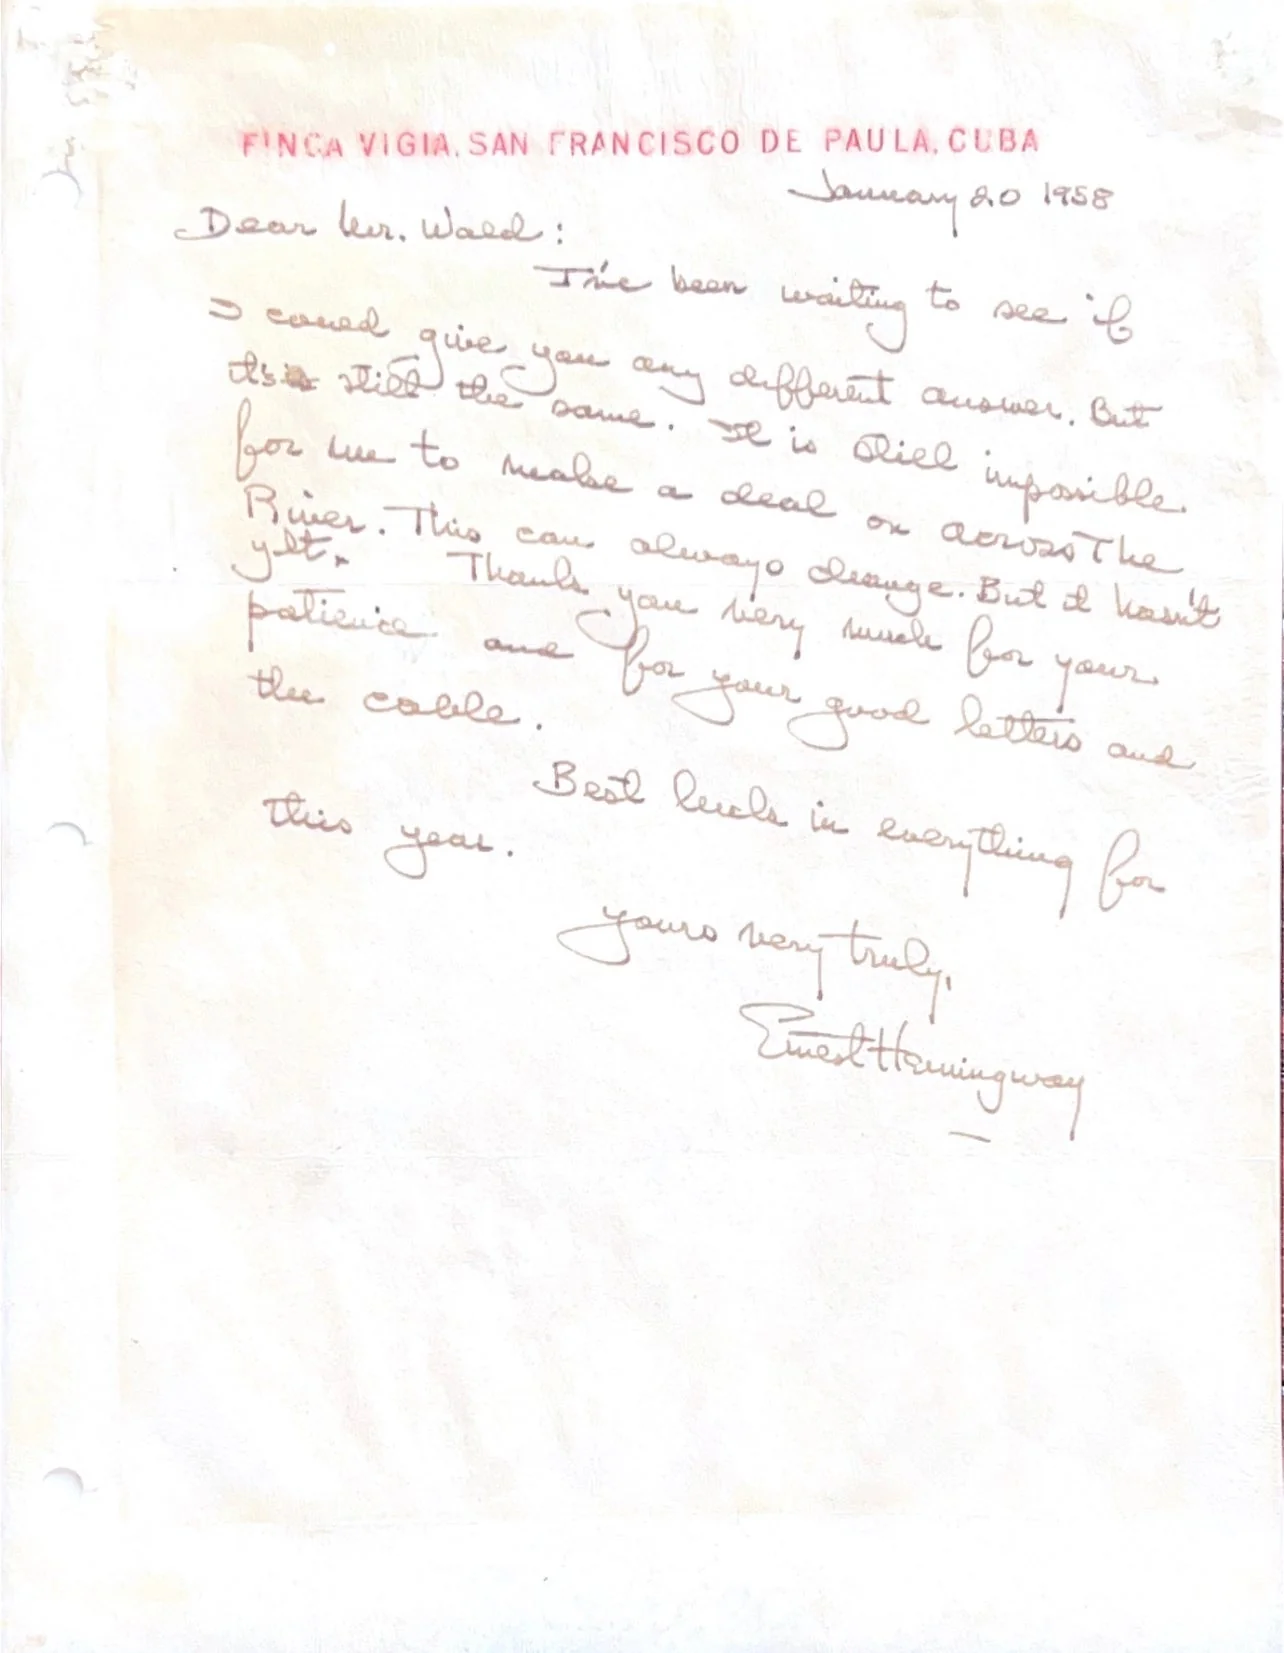 FINCA VIGIA, SAN FRANCISCO DE PAULA, CUBA
January 20 1958
Dear Mr. Wald:
I've been waiting to see if
I could give you any different answer. But
it's still the same. It is still impossible
for me to make a deal on Across The
River. This can always change. But it hasn't
yet. Thank you very much for your
patience and for your good letters and
the cable.
Best luck in everything for
this year.
yours very truly,
Ernest Hemingway